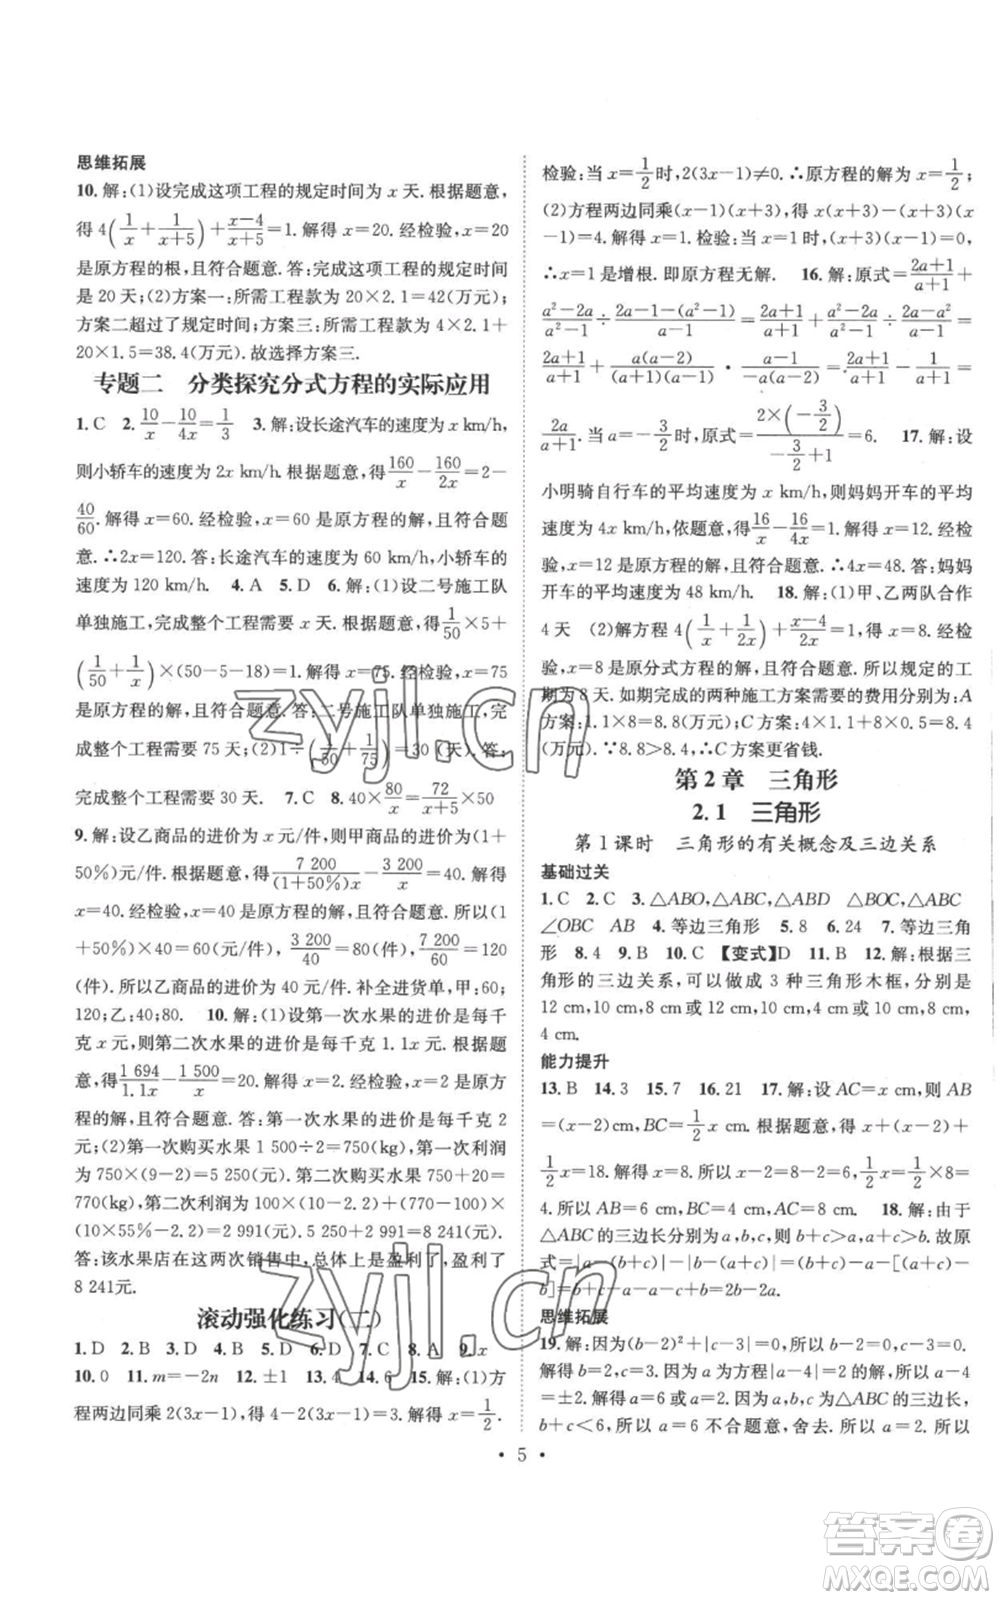 思维拓展
10. 解:(1)设完成这项工程的规定时间为 x 天. 根据题意,
得 4(1/x+1/(x+5))+(x-4)/(x+5)=1. 解得 x=20. 经检验, x=20
是原方程的根,且符合题意. 答:完成这项工程的规定时间
是 20 天;(2)方案一:所需工程款为 20×2.1=42(万元);
方案二超过了规定时间;方案三:所需工程款为 4×2.1+
20×1.5=38.4(万元). 故选择方案三.
专题二 分类探究分式方程的实际应用
1. C 2. 10/x-10/4x=1/3 3. 解:设长途汽车的速度为 x km/h,
则小轿车的速度为 2x km/h. 根据题意,得 160/x-160/2x=2-
40/60. 解得 x=60. 经检验, x=60 是原方程的解,且符合题
意. ∴2x=120. 答:长途汽车的速度为 60 km/h,小轿车的
速度为 120 km/h. 4. A 5. D 6. 解:(1)设二号施工队
单独施工,完成整个工程需要 x 天. 根据题意,得 1/50×5+
(1/50+1/x)×(50-5-18)=1. 解得 x=75. 经检验, x=75
是原方程的解,且符合题意. 答:二号施工队单独施工,完
成整个工程需要 75 天;(2)1÷(1/50+1/75)=30(天). 答:
完成整个工程需要 30 天. 7. C 8. 40×80/x=72/(x+5)×50
9. 解:设乙商品的进价为 x 元/件,则甲商品的进价为(1+
50%)x 元/件. 根据题意,得 7 200/(1+50%)x-3 200/x=40. 解得
x=40. 经检验, x=40 是原方程的解,且符合题意. (1
+50%)×40=60(元/件), 3 200/40=80(件), 7 200/60=120
(件). 所以乙商品的进价为 40 元/件. 补全进货单,甲:60;
120;乙:40;80. 10. 解:(1)设第一次水果的进价是每千
克 x 元,则第二次水果的进价是每千克 1.1x元. 根据题意,
得 1 694/1.1x-1 500/x=20. 解得 x=2. 经检验, x=2 是原方
程的解,且符合题意. 答:第一次水果的进价是每千克 2
元;(2)第一次购买水果 1 500÷2=750(kg), 第一次利润
为 750×(9-2)=5 250(元). 第二次购买水果 750+20=
770(kg), 第二次利润为 100×(10-2.2)+(770-100)×
(10×55%-2.2)=2 991(元). 5 250+2 991=8 241(元).
答:该水果店在这两次销售中,总体上是盈利,盈利了
8 241元.
滚动强化练习(二)
1. D 2. B 3. D 4. B 5. D 6. D 7. C 8. A 9. x
10. 0 11. m=-2n 12. ±1 13. 4 14. 6 15. 解:(1)方
程两边同乘 2(3x-1),得 4-2(3x-1)=3. 解得 x=1/2.
检验:当 x=1/2时,2(3x-1)≠0. ∴原方程的解为 x=1/2;
(2)方程两边同乘(x-1)(x+3),得 x(x+3)-(x+3)(x
-1)=4. 解得 x=1. 检验:当 x=1 时,(x-1)(x+3)=0,
∴x=1 是增根. 即原方程无解. 16. 解:原式=(2a+1)/(a+1)+
(a²-2a)/(a²-1)÷(2a-1-(a²-1))/(a-1)=(2a+1)/(a+1)+(a²-2a)/(a²-1)÷(2a-a²)/(a-1)=
(2a+1)/(a+1)+(a²-2a)/(a²-1)·(a-1)/(2a-a²)=(2a+1)/(a+1)-1/(a+1)=
2a/(a+1). 当 a=-3/2时,原式=(2×(-3/2))/(-3/2+1)=6. 17. 解:设
小明骑自行车的平均速度为 x km/h,则妈妈开车的平均
速度为 4x km/h,依题意,得16/x-16/4x=1. 解得 x=12. 经检
验, x=12 是原方程的解,且符合题意. ∴4x=48. 答:妈妈
开车的平均速度为 48 km/h. 18. 解:(1)甲、乙两队合作
4 天 (2)解方程 4(1/x+1/2x)+(x-4)/2x=1. 解得 x=8. 经检
验, x=8 是原分式方程的解,且符合题意. 所以规定的工
期为 8 天. 如期完成的两种施工方案需要的费用分别为:A
方案:1.1×8=8.8(万元);C 方案:4×1.1+8×0.5=8.4
(万元). ∵8.8>8.4,∴C 方案更省钱.
第 2 章 三角形
2.1 三角形
第 1 课时 三角形的有关概念及三边关系
基础过关
1. C 2. C 3. △ABO,△ABC,△ABD △BOC,△ABC
∠OBC AB 4. 等边三角形 5. 8 6. 24 7. 等边三角
形 8. 4 9. B 10. C 【变式】D 11. B 12. 解:根据三
角形的三边关系,可以做成 3 种三角形木框,分别是
12 cm,10 cm,8 cm 或 12 cm,10 cm,4 cm 或 10 cm,8 cm,
4 cm.
能力提升
13. B 14. 3 15. 7 16. 21 17. 解:设 AC=x cm,则 AB
=(x-2) cm,BC=1/2x cm. 根据题意,得 x+(x-2)+
1/2x=18. 解得 x=8. 所以 x-2=8-2=6,1/2x=1/2×8=
4. 所以 AB=6 cm,BC=4 cm,AC=8 cm. 18. 解:由于
△ABC 的三边长分别为 a,b,c,所以 a+b>c,a+c>b. 故原
式=|a-(b+c)|-|b-(a+c)|=b+c-a-[(a+c)-
b]=b+c-a-a-c+b=2b-2a.
思维拓展
19. 解:因为(b-2)²+|c-3|=0,所以 b-2=0,c-3=0.
解得 b=2,c=3. 因为 a 为方程|a-4|=2 的解,所以 a-4
=±2. 解得 a=6 或 a=2. 因为 a,b,c 为△ABC 的三边长,
b+c<6,所以 a=6 不合题意,舍去. 所以 a=2. 所以
• 5 •
zyjl.cn
zyjl.cn
答案卷
MXQE.COM